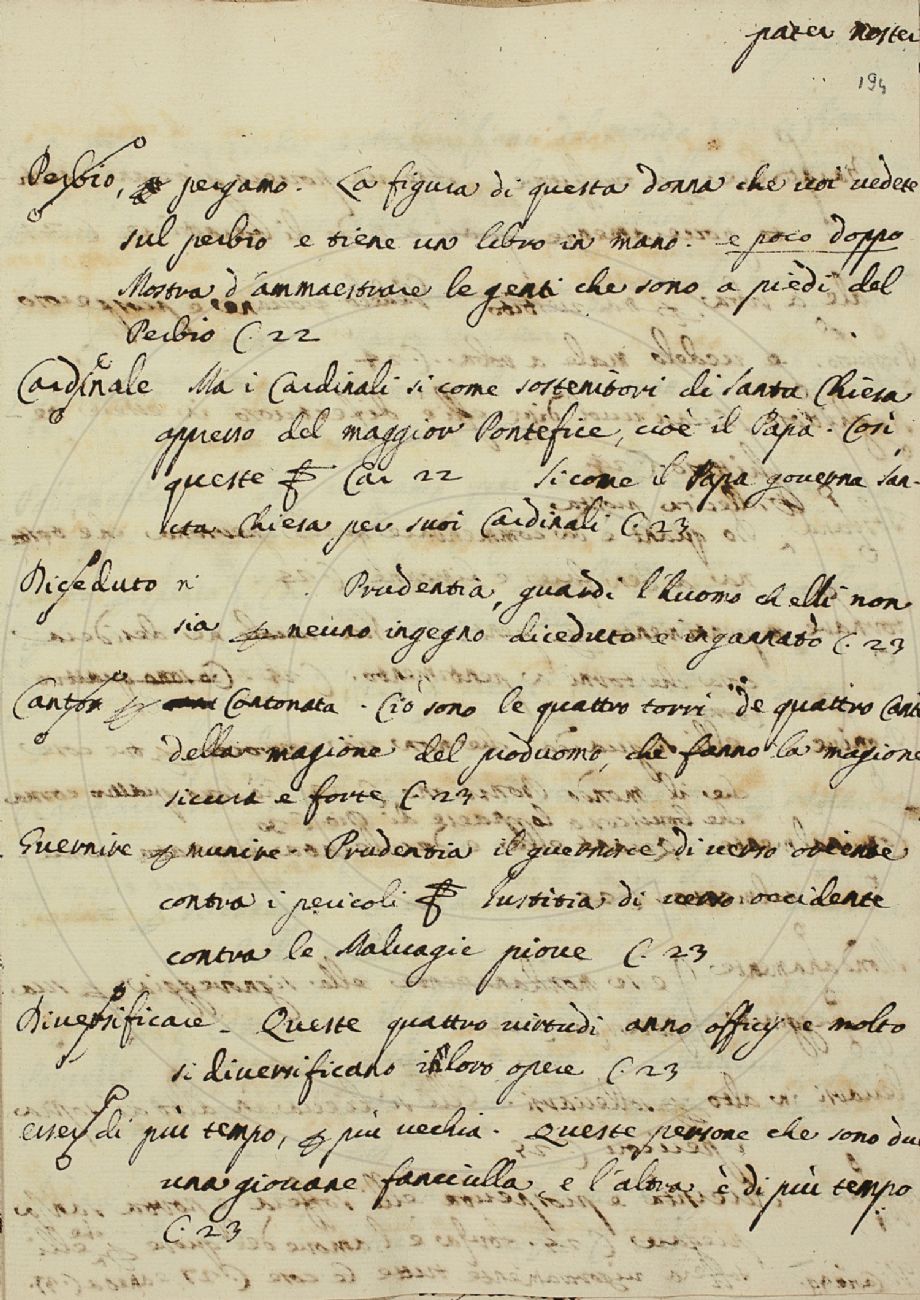 pater noster
194
Perbio, pergamo. La figura di questa donna che voi vedete
sul perbio e tiene un libro in mano. e poco doppo
Mostra d'ammaestrare le genti che sono a piedi del
Perbio C. 22
Cardinale Ma i Cardinali si come sostenitori di Santa Chiesa
appresso del maggior Pontefice, cioè il Papa. Così
queste Car 22 Si come il Papa governa San-
cta Chiesa per suoi Cardinali C. 23
Diceduto n' Prudentia, guardi l'huomo ch elli non
sia neuno ingegno diceduto e ingannato C. 23
Canton Contonata. Ciò sono le quattro torri de quattro Cant
della magione del produomo, che fanno la magione
sicura e forte C. 23
Guernire munire. Prudentia il guernisce di verso oriente
contra i pericoli Iustitia di verso occidente
contra le Malvagie piove C. 23
Diversificare. Queste quattro virtudi anno officij e molto
si diversificano in loro opere C. 23
esser di piu tempo, più vecchia. Queste persone che sono du
una giovane fanciulla e l'altra è di più tempo
C. 23